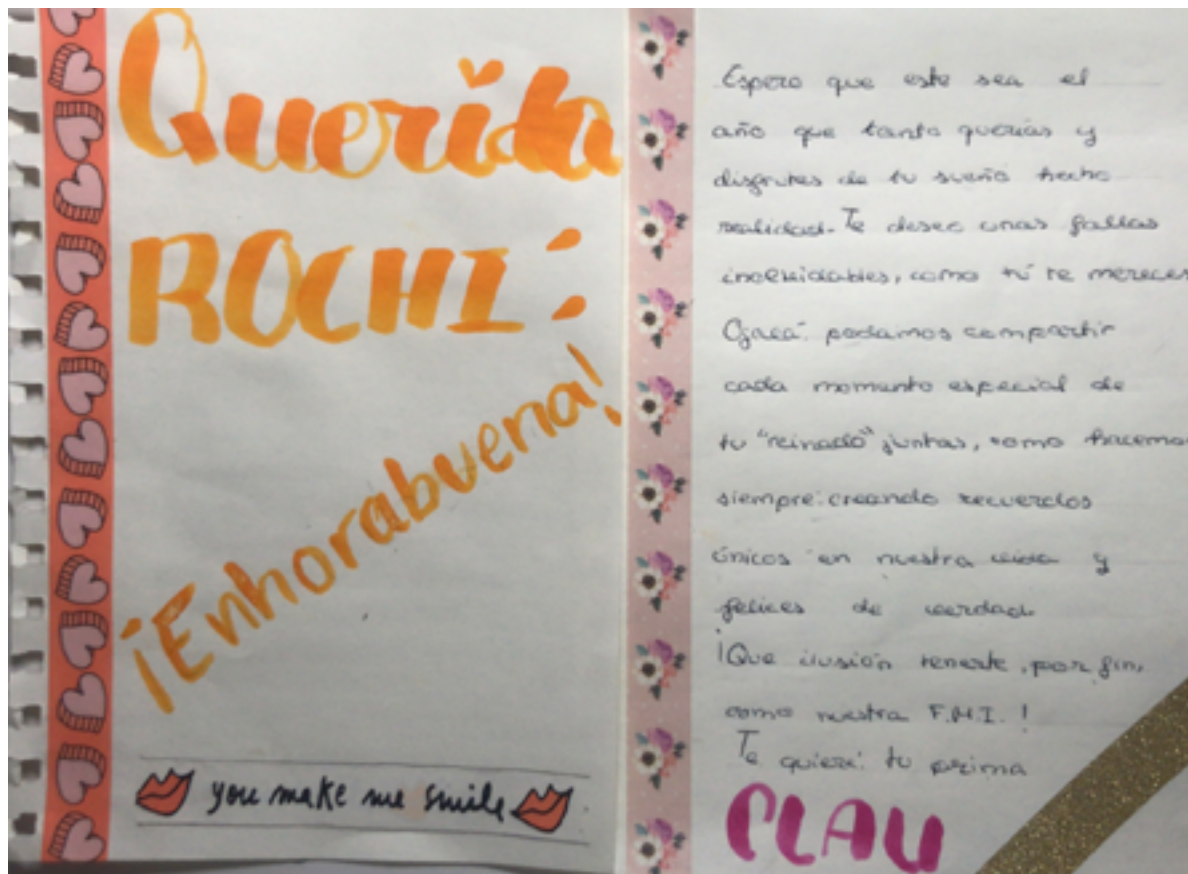 Querida
ROCHI:
¡Enhorabuena!
you make me smile
Espero que este sea el
año que tanto querías y
disfrutes de tu sueño hecho
realidad. Te deseo unas fallas
inolvidables, como tú te mereces
Ojalá podamos compartir
cada momento especial de
tu "reinado" juntas, como hacemos
siempre: creando recuerdos
únicos en nuestra vida y
felices de verdad.
¡Que ilusión tenerte, por fin,
como nuestra F.M.I. !
Te quiere: tu prima
CLAU